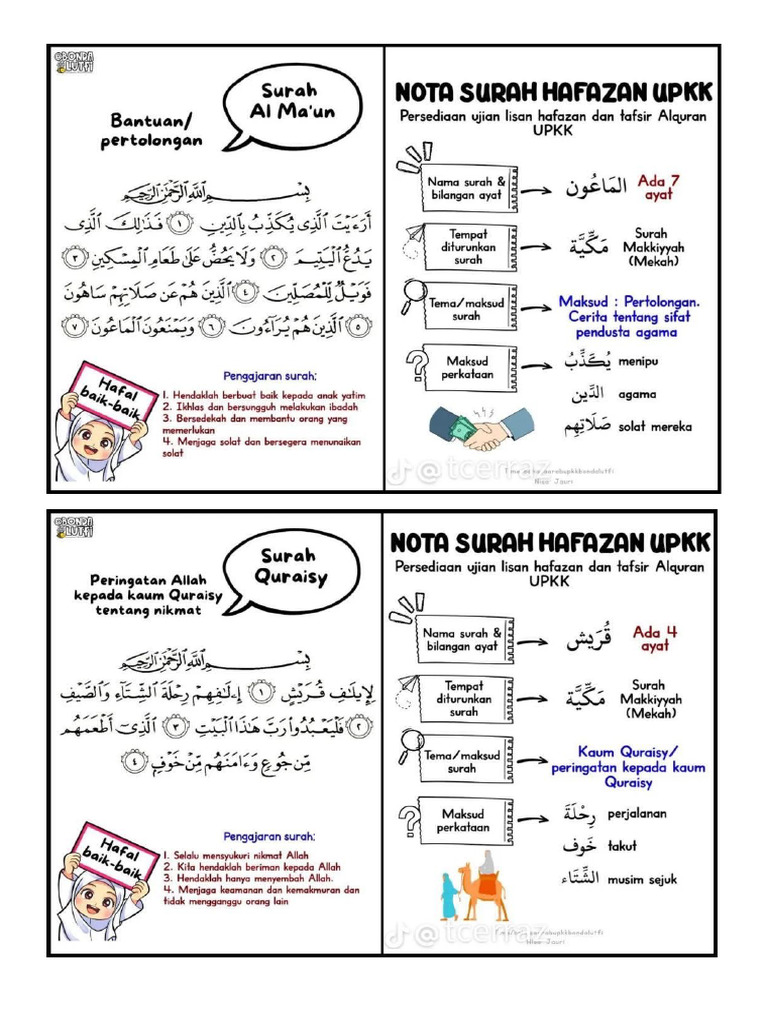 @BONDA
LUTFI
Surah
Al Ma'un
Bantuan/
pertolongan
بِسْمِ اللَّهِ الرَّحْمَٰنِ الرَّحِيمِ
أَرَءَيْتَ الَّذِي يُكَذِّبُ بِالدِّينِ ١ فَذَٰلِكَ الَّذِي
يَدُعُّ الْيَتِيمَ ٢ وَلَا يَحُضُّ عَلَىٰ طَعَامِ الْمِسْكِينِ ٣
فَوَيْلٌ لِّلْمُصَلِّينَ ٤ الَّذِينَ هُمْ عَن صَلَاتِهِمْ سَاهُونَ
٥ الَّذِينَ هُمْ يُرَاءُونَ ٦ وَيَمْنَعُونَ الْمَاعُونَ ٧
Pengajaran surah:
1. Hendaklah berbuat baik kepada anak yatim
2. Ikhlas dan bersungguh melakukan ibadah
3. Bersedekah dan membantu orang yang
memerlukan
4. Menjaga solat dan bersegera menunaikan
solat
Hafal
baik-baik
NOTA SURAH HAFAZAN UPKK
Persediaan ujian lisan hafazan dan tafsir Alquran
UPKK
Nama surah &
bilangan ayat
الْمَاعُون
Ada 7
ayat
Tempat
diturunkan
surah
مَكِّيَّة
Surah
Makkiyyah
(Mekah)
Tema/maksud
surah
Maksud : Pertolongan.
Cerita tentang sifat
pendusta agama
Maksud
perkataan
يُكَذِّبُ menipu
الدِّين agama
صَلَاتِهِم solat mereka
@tcerraz
Nisa Jauri
@BONDA
LUTFI
Surah
Quraisy
Peringatan Allah
kepada kaum Quraisy
tentang nikmat
بِسْمِ اللَّهِ الرَّحْمَٰنِ الرَّحِيمِ
لِإِيلَافِ قُرَيْشٍ ١ إِۦلَافِهِمْ رِحْلَةَ الشِّتَاءِ وَالصَّيْفِ
٢ فَلْيَعْبُدُوا رَبَّ هَٰذَا الْبَيْتِ ٣ الَّذِي أَطْعَمَهُم
مِّن جُوعٍ وَءَامَنَهُم مِّنْ خَوْفٍ ٤
Pengajaran surah:
1. Selalu mensyukuri nikmat Allah
2. Kita hendaklah beriman kepada Allah
3. Hendaklah hanya menyembah Allah.
4. Menjaga keamanan dan kemakmuran dan
tidak mengganggu orang lain
Hafal
baik-baik
NOTA SURAH HAFAZAN UPKK
Persediaan ujian lisan hafazan dan tafsir Alquran
UPKK
Nama surah &
bilangan ayat
قُرَيْش
Ada 4
ayat
Tempat
diturunkan
surah
مَكِّيَّة
Surah
Makkiyyah
(Mekah)
Tema/maksud
surah
Kaum Quraisy/
peringatan kepada kaum
Quraisy
Maksud
perkataan
رِحْلَةَ perjalanan
خَوْف takut
الشِّتَاء musim sejuk
@tcerraz
Nisa Jauri